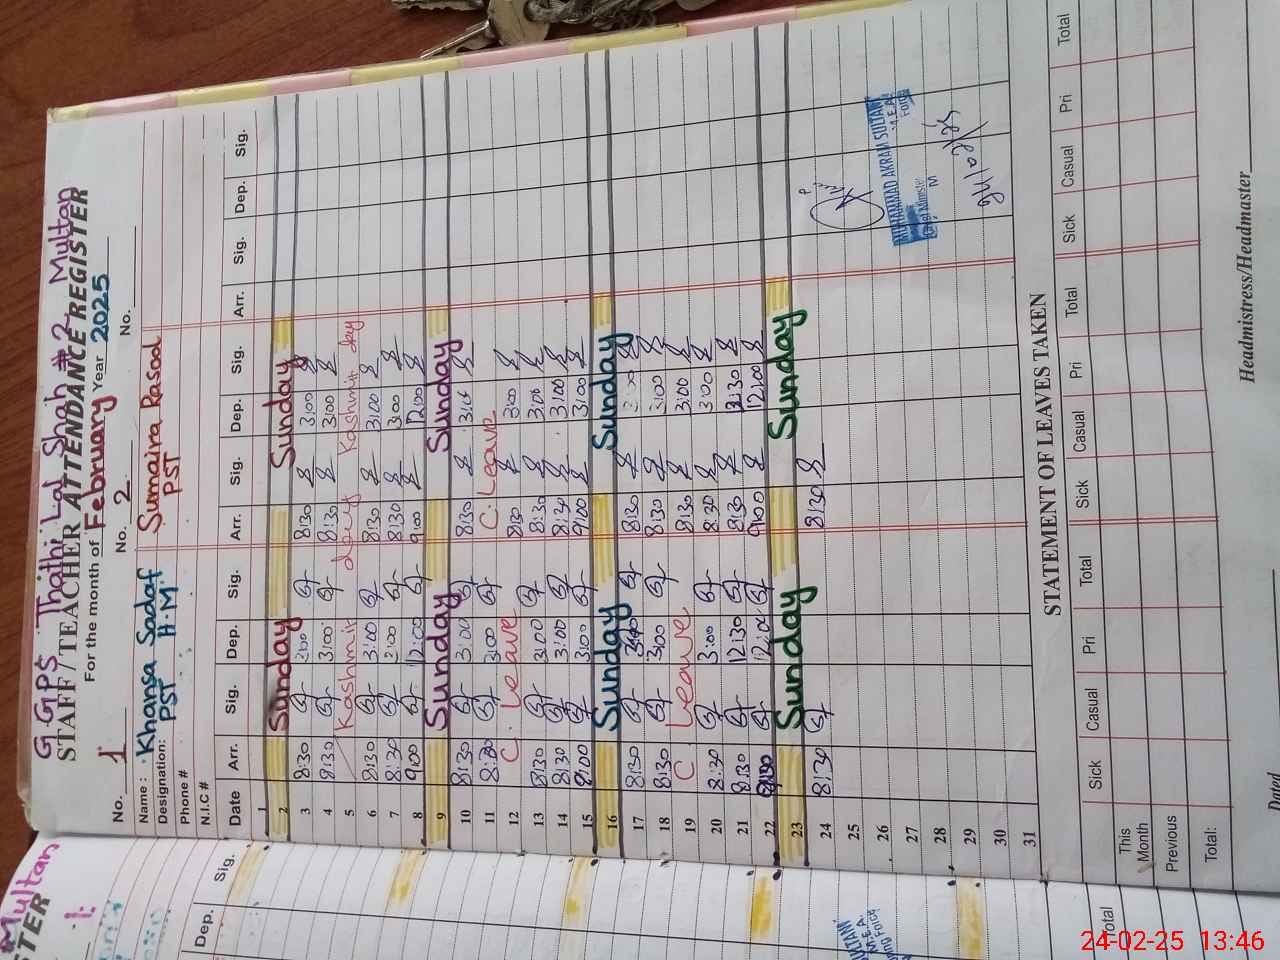 G.GPS Thathi Lal Shah # 2 Multan
STAFF/TEACHER ATTENDANCE REGISTER
For the month of February Year 2025
No. 1 No. 2 No.
Name : Khansa Sadaf Sumaira Rasool
Designation: PST H.M PST
Phone #
N.I.C #
Date Arr. Sig. Dep. Sig. Arr. Sig. Dep. Sig. Arr. Sig. Dep. Sig.
1
2 Sunday Sunday
3 8:30 8:30 3:00
4 8:30 3:00 8:30 3:00
5 Kashmir day Kashmir day
6 8:30 3:00 8:30 3:00
7 8:30 8:30 3:00
8 9:00 12:00 9:00 12:00
9 Sunday Sunday
10 8:30 3:00 8:30
11 8:30 3:00 C. Leave
12 C. Leave 8:30 3:00
13 8:30 3:00 8:30 3:00
14 8:30 3:00 8:30 3:00
15 9:00 3:00 9:00 3:00
16 Sunday Sunday
17 8:30 8:30
18 8:30 3:00 8:30 3:00
19 C. Leave 8:30 3:00
20 8:30 3:00 8:30 3:00
21 8:30 12:30 8:30
22 12:00 9:00 12:00
23 Sunday Sunday
24 8:30 8:30
25
26
27
28
29
30
31
MUHAMMAD AKRAM SULTANI
M.E.A.
24/02/25
STATEMENT OF LEAVES TAKEN
Sick Casual Pri Total Sick Casual Pri Total Sick Casual Pri Total
This Month
Previous
Total:
Dated
Headmistress/Headmaster
Multan
TER
Dep. Sig.
SULTANI
M.E.A.
Total
24-02-25 13:46